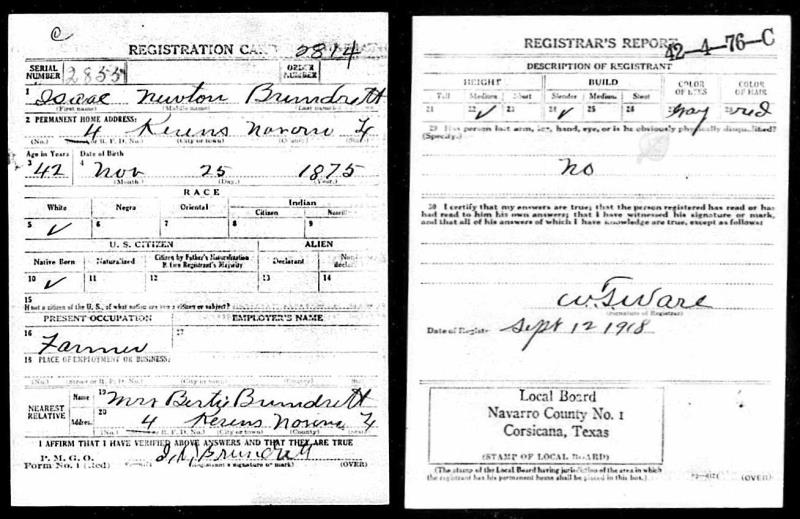 C
REGISTRATION CARD 2814
SERIAL NUMBER 2855 ORDER NUMBER
1 Isaac Newton Brundrett
(First name) (Middle name) (Last name)
2 PERMANENT HOME ADDRESS:
4 Kerens Navarro
(No.) (Street or R. F. D. No.) (City or town) (County) (State)
Age in Years Date of Birth
3 42 4 Nov 25 1875
(Month.) (Day.) (Year.)
RACE
White Negro Oriental Indian
Citizen
5 ✓ 6 7 8 9
U. S. CITIZEN ALIEN
Native Born Naturalized Citizen by Father's Naturalization Before Registrant's Majority Declarant
10 ✓ 11 12 13 14
15
If not a citizen of the U. S., of what nation are you a citizen or subject?
PRESENT OCCUPATION EMPLOYER'S NAME
16 17
Farmer
18 PLACE OF EMPLOYMENT OR BUSINESS:
(No.) (Street or R. F. D. No.) (City or town) (County) (State)
NEAREST RELATIVE
Name 19 Mrs Bertie Brundrett
Address 20 4 Kerens
(No.) (Street or R. F. D. No.) (City or town) (County) (State)
I AFFIRM THAT I HAVE VERIFIED ABOVE ANSWERS AND THAT THEY ARE TRUE
P. M. G. O.
Form No. 1 (Red) I. N. Brundrett
(Registrant's signature or mark) (OVER)
REGISTRAR'S REPORT 42-4-76-C
DESCRIPTION OF REGISTRANT
HEIGHT BUILD COLOR OF EYES COLOR OF HAIR
Tall Medium Short Slender Medium Stout
21 22 ✓ 23 24 ✓ 25 26 gray red
29 Has person lost arm, leg, hand, eye, or is he obviously physically disqualified?
(Specify.)
no
30 I certify that my answers are true; that the person registered has read or has
had read to him his own answers; that I have witnessed his signature or mark,
and that all of his answers of which I have knowledge are true, except as follows:
Ware
(Signature of Registrar)
Date of Registration Sept 12 1918
Local Board
Navarro County No. 1
Corsicana, Texas
(STAMP OF LOCAL BOARD)
(The stamp of the Local Board having jurisdiction of the area in which
the registrant has his permanent home shall be placed in this box.)
(OVER)